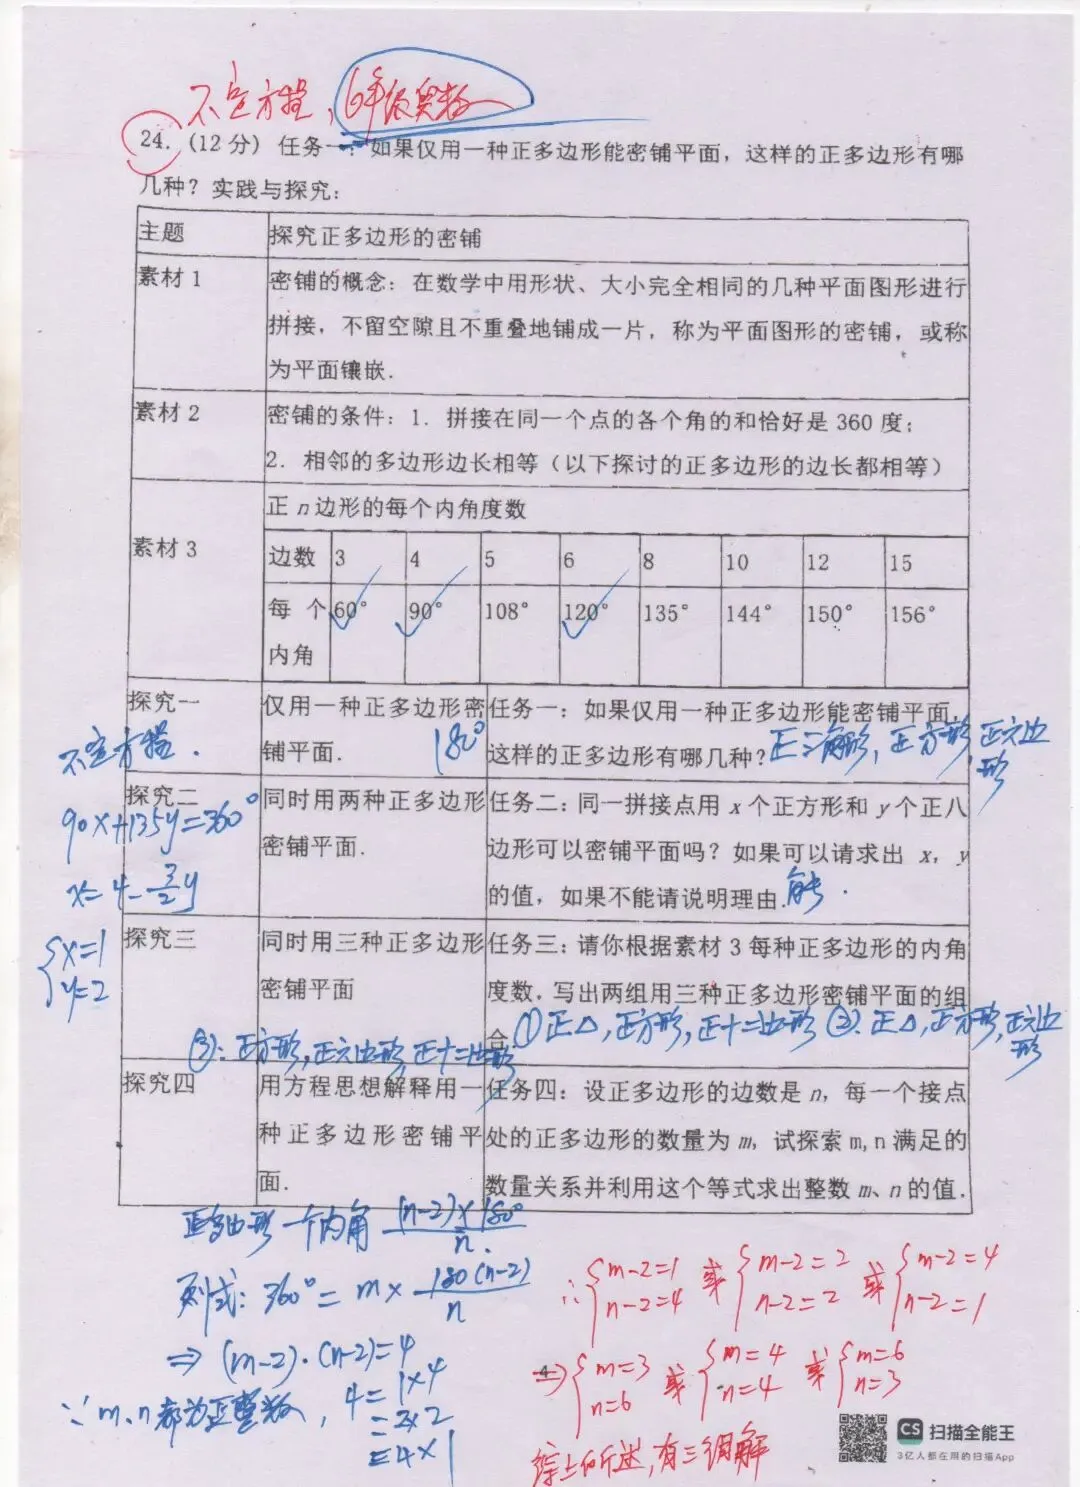 不定方程，6年级奥数
24.（12 分）任务一：如果仅用一种正多边形能密铺平面，这样的正多边形有哪
几种？实践与探究：
主题 探究正多边形的密铺
素材 1 密铺的概念：在数学中用形状、大小完全相同的几种平面图形进行
拼接，不留空隙且不重叠地铺成一片，称为平面图形的密铺，或称
为平面镶嵌.
素材 2 密铺的条件：1．拼接在同一个点的各个角的和恰好是 360 度；
2．相邻的多边形边长相等（以下探讨的正多边形的边长都相等）
正 n 边形的每个内角度数
素材 3 边数 3 4 5 6 8 10 12 15
每个 60° 90° 108° 120° 135° 144° 150° 156°
内角
探究一 仅用一种正多边形密 任务一：如果仅用一种正多边形能密铺平面，
铺平面. 180° 这样的正多边形有哪几种？正三角形，正方形，正六边
形
不定方程．
探究二 同时用两种正多边形 任务二：同一拼接点用 x 个正方形和 y 个正八
90x+135y=360°
密铺平面. 边形可以密铺平面吗？如果可以请求出 x，y
x=4-3/2y
的值，如果不能请说明理由. 能．
探究三 同时用三种正多边形 任务三：请你根据素材 3 每种正多边形的内角
{x=1
y=2
密铺平面 度数，写出两组用三种正多边形密铺平面的组
合. ①正△，正方形，正十二边形 ②. 正△，正方形，正六边
形
③: 正方形，正六边形，正十二边形
探究四 用方程思想解释用一 任务四：设正多边形的边数是 n，每一个接点
种正多边形密铺平 处的正多边形的数量为 m，试探索 m,n 满足的
面. 数量关系并利用这个等式求出整数 m、n 的值.
正多边形一个内角 (n-2)×180°/n.
列式: 360°=m×180(n-2)/n
⇒(m-2)·(n-2)=4
∵m、n都为正整数，4=1×4
=2×2
=4×1
∴{m-2=1 或 {m-2=2 或 {m-2=4
n-2=4 n-2=2 n-2=1
⇒{m=3 或 {m=4 或 {m=6
n=6 n=4 n=3
4
综上所述，有三组解
CS 扫描全能王
3亿人都在用的扫描App